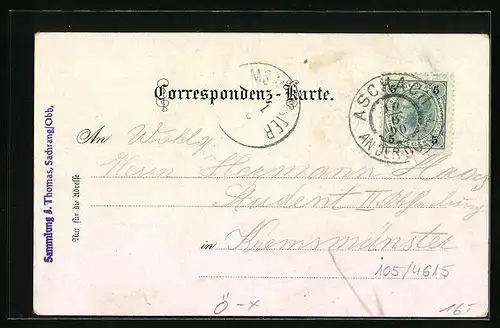 Correspondenz-Karte.
ASCHACH
AN DER DONAU
5
5
An Wohlg.
Herrn Hermann Haas
Student II. Abtheilung
in Kremsmünster
105/4615
Ö-x
16.-
Nur für die Adresse
Sammlung J. Thomas, Sachrang/Obb.